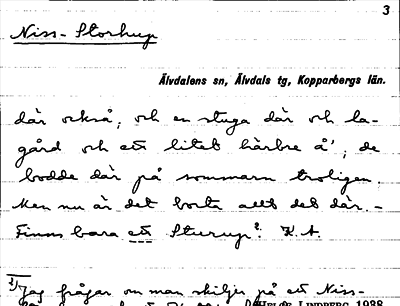 3
Niss-Storhup
Älvdalens sn, Älvdals tg, Kopparbergs län.
där också, och en stuga där och la-
gård och ett litet härbre å'; de
bodde där på sommarn troligen.
Men nu är det borta allt det där. -
Finns bara ett Sturup². K.A.
²⁾Jag frågar om man skiljer på ett Niss-
HELGE LINDBERG 1938